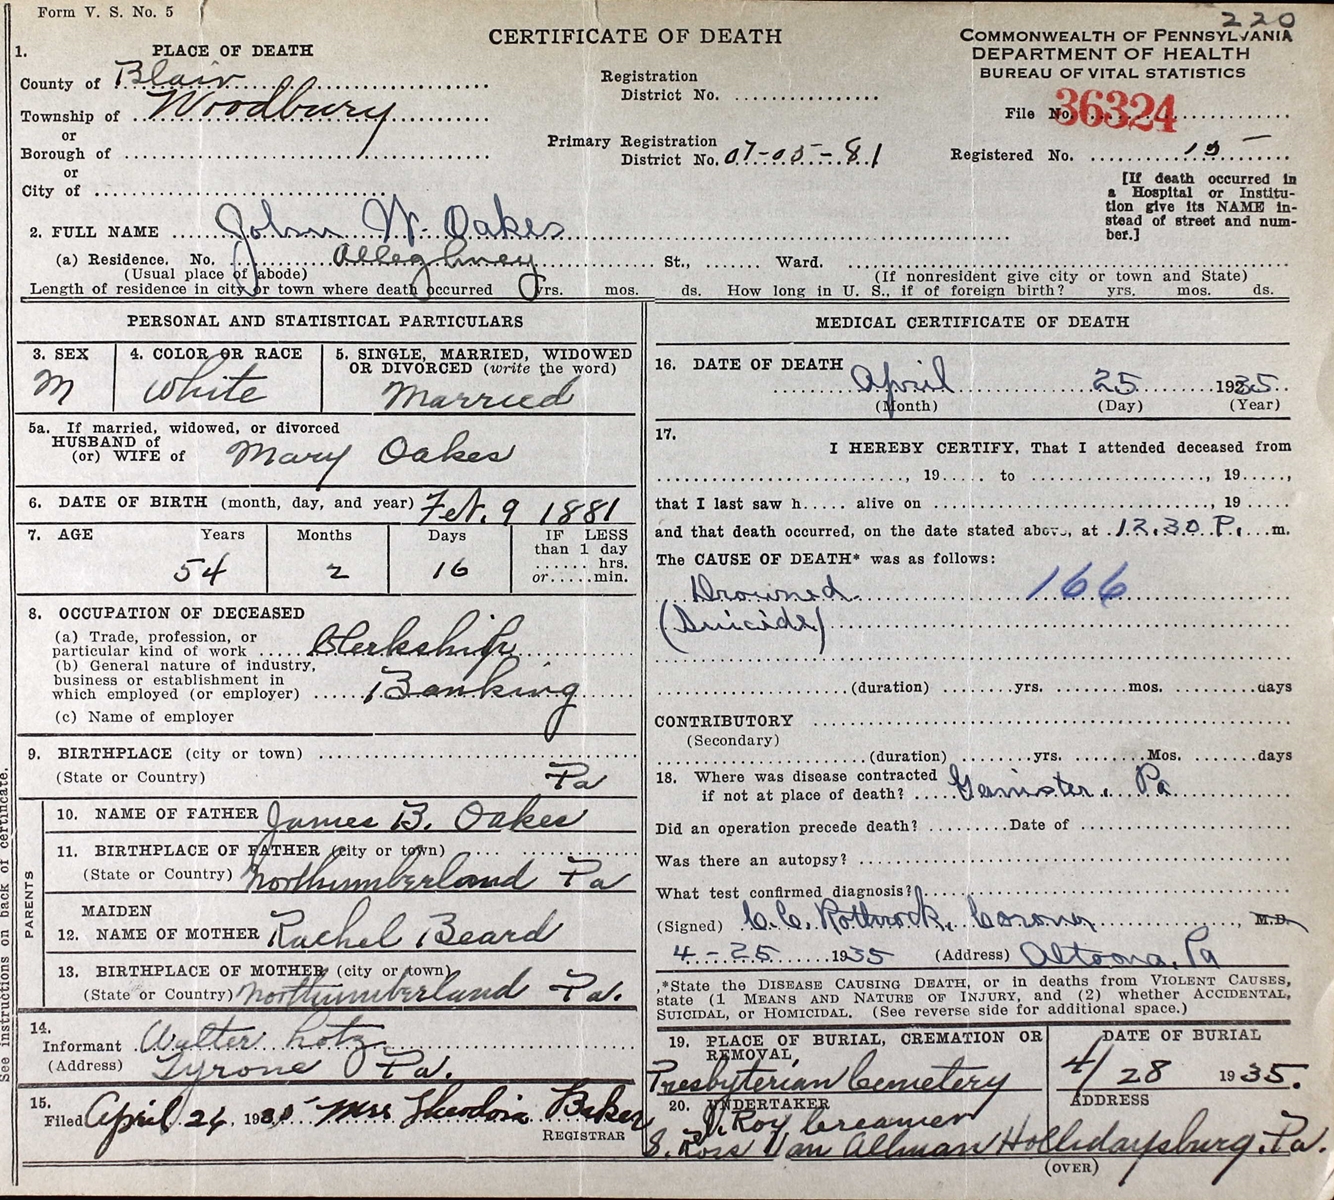 Form V. S. No. 5
220
CERTIFICATE OF DEATH
COMMONWEALTH OF PENNSYLVANIA
DEPARTMENT OF HEALTH
BUREAU OF VITAL STATISTICS
1. PLACE OF DEATH
County of Blair
Township of Woodbury
or
Borough of
or
City of
Registration
District No.
Primary Registration
District No. 07-05-81
File No. 36324
Registered No. 15
[If death occurred in
a Hospital or Institu-
tion give its NAME in-
stead of street and num-
ber.]
2. FULL NAME John W. Oakes
(a) Residence. No. Alleghney St., Ward.
(Usual place of abode) (If nonresident give city or town and State)
Length of residence in city or town where death occurred yrs. mos. ds. How long in U. S., if of foreign birth? yrs. mos. ds.
PERSONAL AND STATISTICAL PARTICULARS
3. SEX
M
4. COLOR OR RACE
White
5. SINGLE, MARRIED, WIDOWED
OR DIVORCED (write the word)
Married
5a. If married, widowed, or divorced
HUSBAND of
(or) WIFE of Mary Oakes
6. DATE OF BIRTH (month, day, and year) Feb. 9 1881
7. AGE Years Months Days IF LESS
than 1 day
hrs.
or min.
54 2 16
8. OCCUPATION OF DECEASED
(a) Trade, profession, or
particular kind of work Clerkship
(b) General nature of industry,
business or establishment in
which employed (or employer) Banking
(c) Name of employer
9. BIRTHPLACE (city or town)
(State or Country) Pa
PARENTS
10. NAME OF FATHER James B. Oakes
11. BIRTHPLACE OF FATHER (city or town)
(State or Country) Northumberland Pa
MAIDEN
12. NAME OF MOTHER Rachel Beard
13. BIRTHPLACE OF MOTHER (city or town)
(State or Country) Northumberland Pa.
14.
Informant Walter Lotz
(Address) Tyrone Pa.
15.
Filed April 26 1935 Mrs Theodoia Baker
REGISTRAR
See instructions on back of certificate.
MEDICAL CERTIFICATE OF DEATH
16. DATE OF DEATH
April 25 1935
(Month) (Day) (Year)
17.
I HEREBY CERTIFY, That I attended deceased from
, 19 to , 19 ,
that I last saw h alive on , 19
and that death occurred, on the date stated above, at 12.30 P. m.
The CAUSE OF DEATH* was as follows:
Drowned 166
(Suicide)
(duration) yrs. mos. days
CONTRIBUTORY
(Secondary)
(duration) yrs. Mos. days
18. Where was disease contracted
if not at place of death? Ganister, Pa
Did an operation precede death? Date of
Was there an autopsy?
What test confirmed diagnosis?
(Signed) C.C. Rothrock, Coroner, M.D.
4-25 1935 (Address) Altoona, Pa
*State the DISEASE CAUSING DEATH, or in deaths from VIOLENT CAUSES,
state (1 MEANS AND NATURE OF INJURY, and (2) whether ACCIDENTAL,
SUICIDAL, or HOMICIDAL. (See reverse side for additional space.)
19. PLACE OF BURIAL, CREMATION OR
REMOVAL,
Presbyterian Cemetery
DATE OF BURIAL
4/28 1935.
20. UNDERTAKER
J. Roy Creamer
S. Ross Van Allman
ADDRESS
Hollidaysburg, Pa.
(OVER)